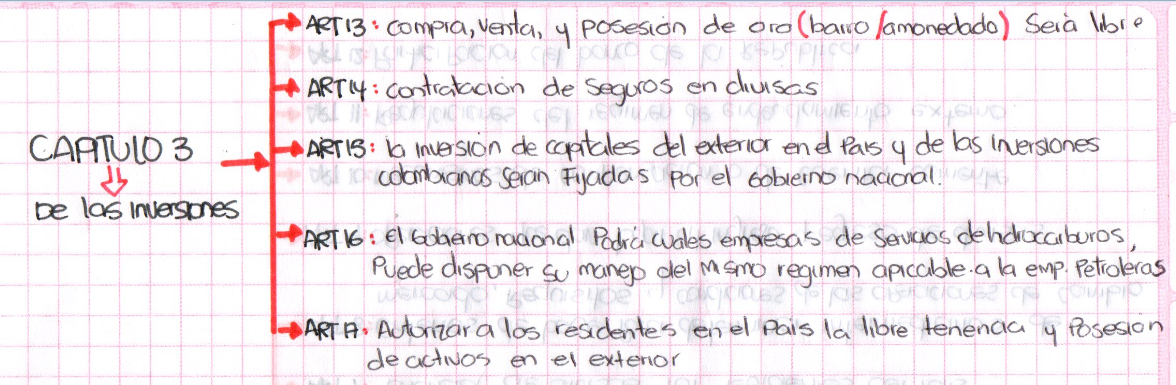 CAPITULO 3
De las inversiones
ART13: compra, venta, y posesión de oro (barro/amonedado) Sera libre
ART14: contratación de Seguros en divisas
ART15: la inversión de capitales del exterior en el País y de las inversiones
colombianas seran Fijadas Por el Gobierno nacional.
ART16: el Gobierno nacional Podrá cuales empresas de Servicios de hidrocarburos,
Puede disponer su manejo del mismo regimen apicable a la emp. Petroleras
ART17: Autorizar a los residentes en el País la libre tenencia y Posesión
de activos en el exterior